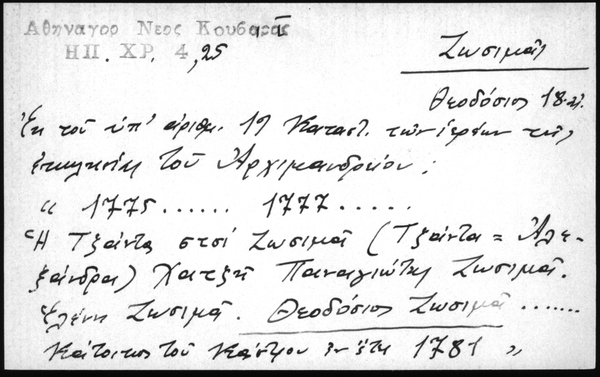 Αθηναγορ Νεος Κουβαρας Ι
ΗΠ. ΧΡ. 4, 25
Ζωσιμᾶς
Θεοδόσιος 18
Ἐκ τοῦ ὑπ' ἀριθμ. 19 Καταστ. τῶν ἱερέων τῆς
ἐκκλησίας τοῦ Ἀρχιμανδρείου :
" 1775 ...... 1777 .....
Ἡ Τζάντα στσί Ζωσιμᾶ (Τζάντα = Ἀλε-
ξάνδρα) Χατζῆ Παναγιώτης Ζωσιμᾶ.
Ἑλένη Ζωσιμᾶ. Θεοδόσιος Ζωσιμᾶ .......
Κάτοικος τοῦ Κάστρου ἐν ἔτει 1781 "